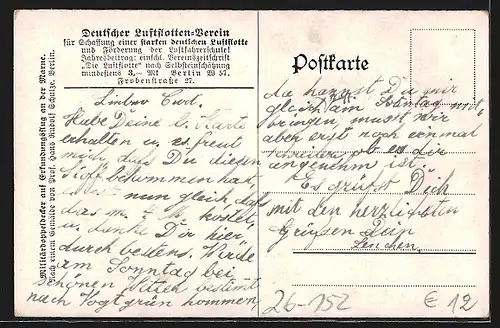 Deutscher Luftflotten-Verein
für Schaffung einer starken deutschen Luftflotte
und Förderung der Luftfahrerschule!
Jahresbeitrag: einschl. Vereinszeitschrift
„Die Luftflotte“ nach Selbsteinschätzung
mindestens 3,— Mk Berlin W 57.
Frobenstraße 27.
Militärdoppeldecker auf Erkundungsflug an der Marne.
Nach einem Gemälde von Prof. Hans Rudolf Schulze, Berlin.
Lieber Curt.
Habe Deine l. Karte
erhalten u. es freut
mich, daß Du diesen
Stoff bekommen hast,
nun gleich, daß
das kostet,
u. danke Dir hier
durch bestens. Werde
am Sonntag bei
schönen Wetter bestimmt
nach Vogtgrün kommen,
Postkarte
da kannst Du mir
gleich am Sonntag mit
bringen, mußt mir
aber erst noch einmal
schreiben ob es dir
angenehm ist.
Es grüßt Dich
mit den herzlichsten
Grüßen Dein
Lenchen.
26-152
€ 12